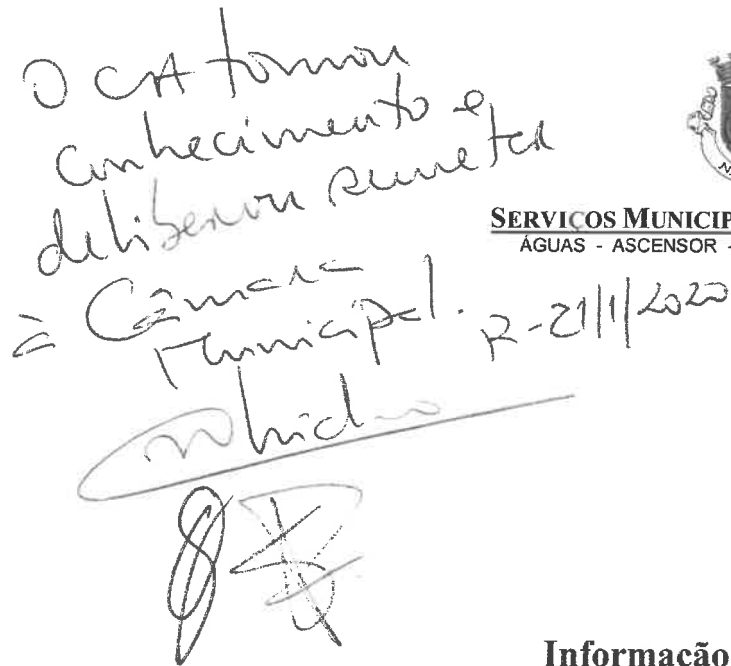 O CA tomou
conhecimento e
deliberou remeter
à Câmara
Municipal.
R-21/1/2020
SERVIÇOS MUNICIP
ÁGUAS - ASCENSOR -
Informação